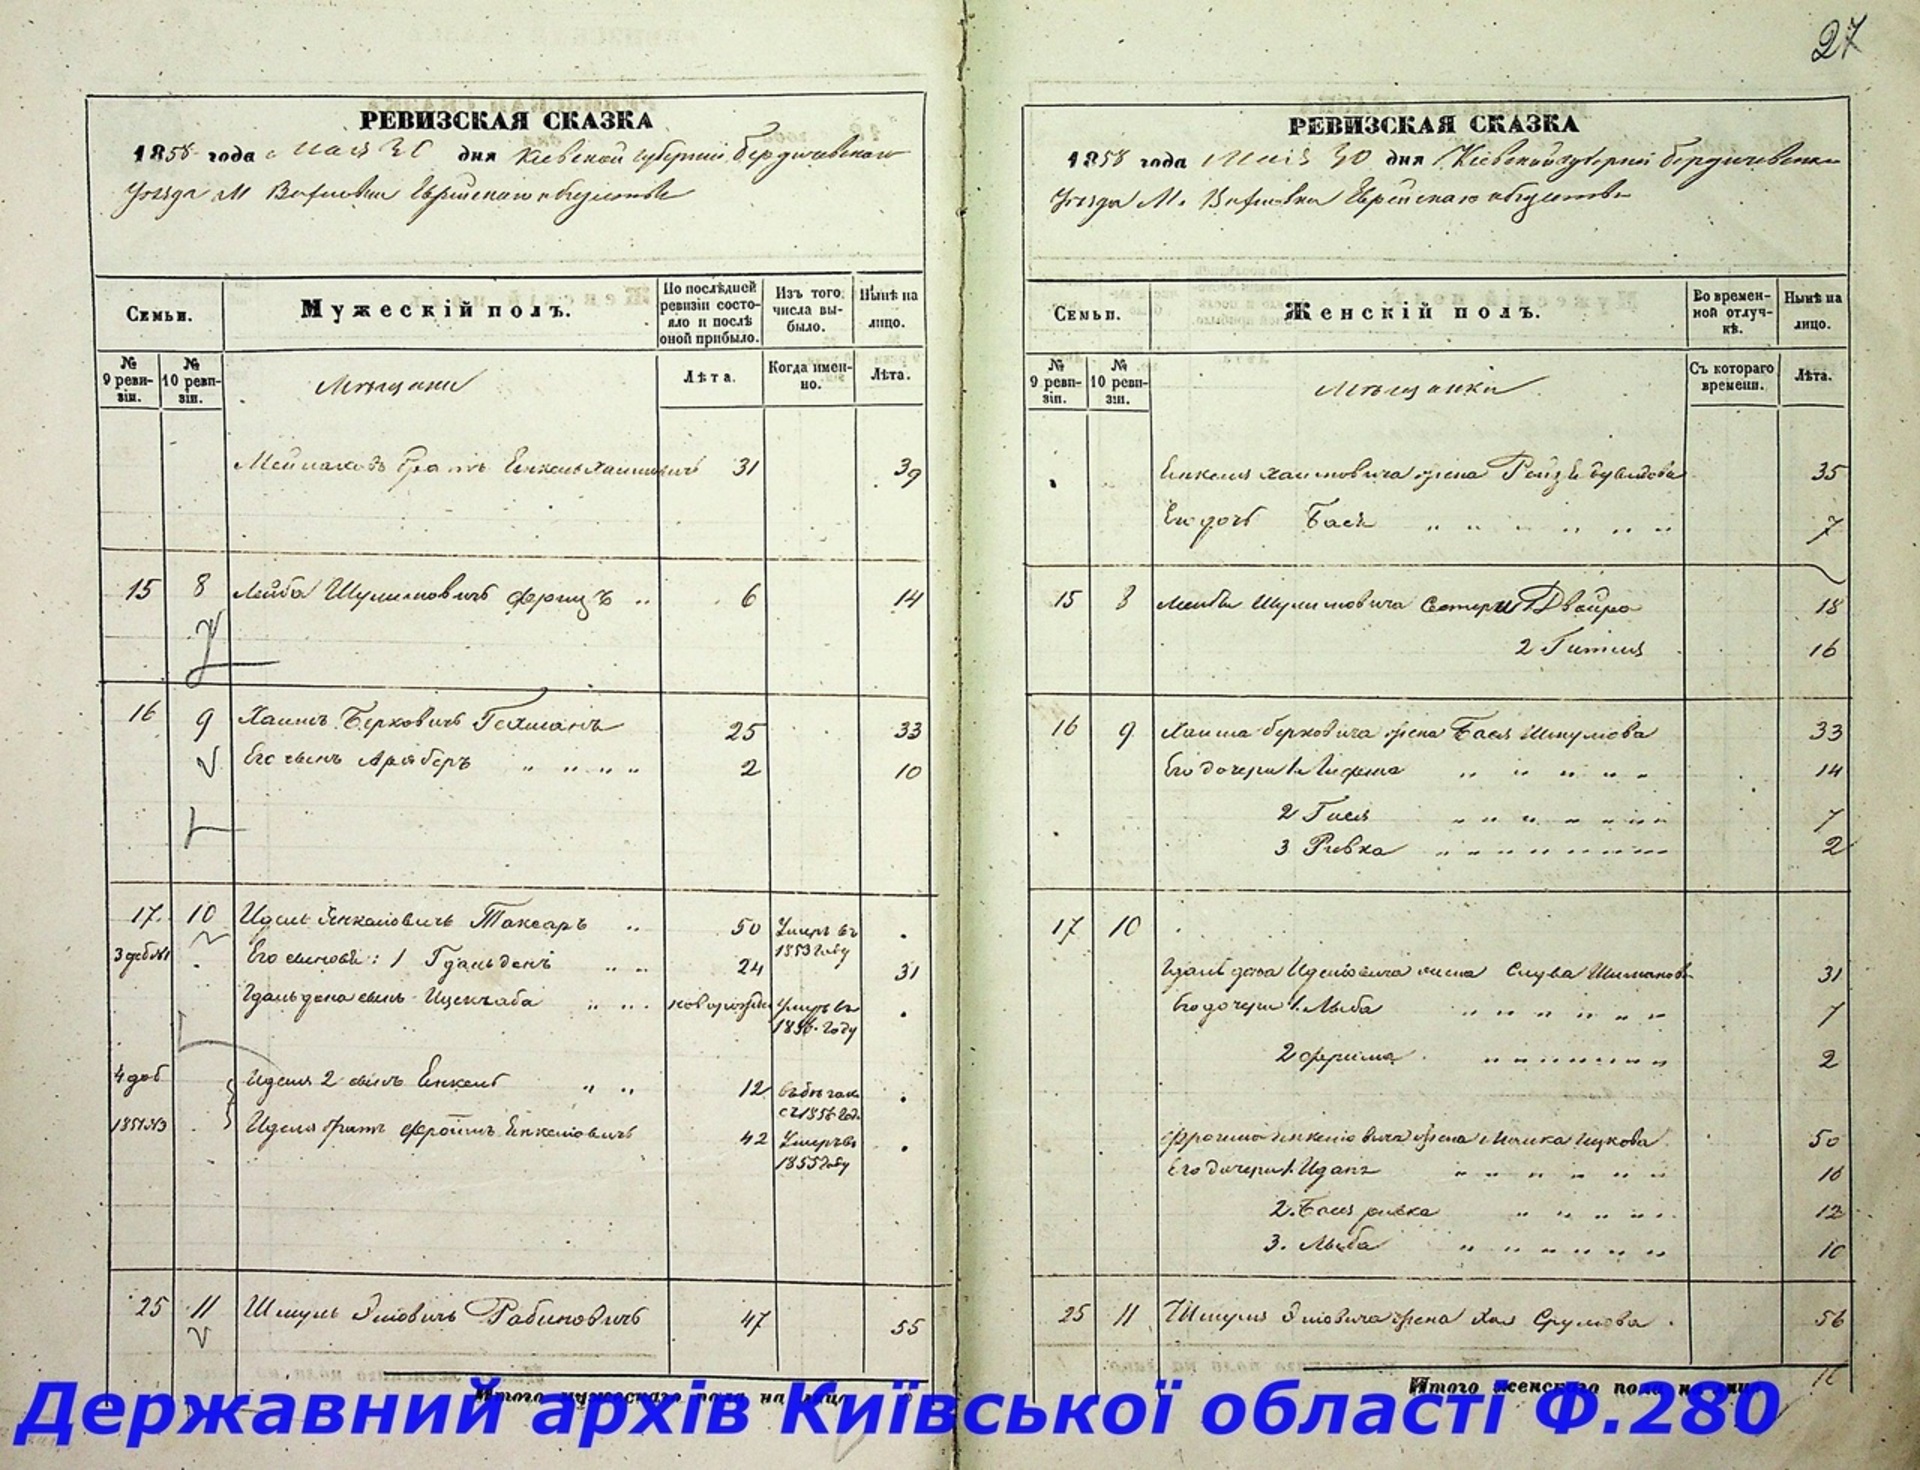 27
РЕВИЗСКАЯ СКАЗКА
1858 года Мая 30 дня Кіевской губерніи Бердичевскаго
Уезда М Еврейскаго общества
Семьи.
Мужескій полъ.
По послѣдней ревизіи состояло и послѣ оной прибыло.
Изъ того числа выбыло.
Нынѣ на лицо.
№ 9 ревизіи.
№ 10 ревизіи.
Мѣщани
Лѣта.
Когда именно.
Лѣта.
братъ Енкель Хаимовичъ 31 39
15 8 Лейба Шулимовичъ 6 14
16 9 Хаимъ Берковичъ Гехманъ 25 33
Его сынъ 2 10
17. 10 Идель Янкелевичъ Таксаръ 50 Умеръ въ 1853 году
3 доб №1 Его сыновья: 1 Гдальденъ 24 31
Гдальдена сынъ новорожден Умеръ въ 1856 году
4 доб Иделя 2 сынъ Енкель 12 въ бегах с 1856 год.
1851 №3 Иделя братъ Фроимъ Енкелевичъ 42 Умеръ въ 1855 году
25 11 Шмуль Рабиновичъ 47 55
Итого мужескаго пола на лицо
РЕВИЗСКАЯ СКАЗКА
1858 года Мая 30 дня Кіевской губерніи Бердичевскаго
Уезда М. Еврейскаго общества
Семьи.
Женскій полъ.
Во временной отлучкѣ.
Нынѣ на лицо.
№ 9 ревизіи.
№ 10 ревизіи.
Мѣщанки
Съ котораго времени.
Лѣта.
Енкеля Хаимовича жена 35
Его дочь Бася 7
15 8 Лейбы Шулимовича сестры 1 Двойра 18
2 Гитля 16
16 9 Хаима Берковича жена Бася Шмулова 33
Его дочери 1. 14
2 Гися 7
3 Ривка 2
17 10
Гдальдена Иделовича жена Слува 31
Его дочери 1. Лыба 7
2 Фрима 2
Фроима Енкелевича жена Ицкова 50
Его дочери 1. 16
2. Бася ривка 12
3. Лыба 10
25 11 Шмуля жена Хая Срулова 56
Итого женскаго пола на лицо 16
Державний архів Київської області Ф.280